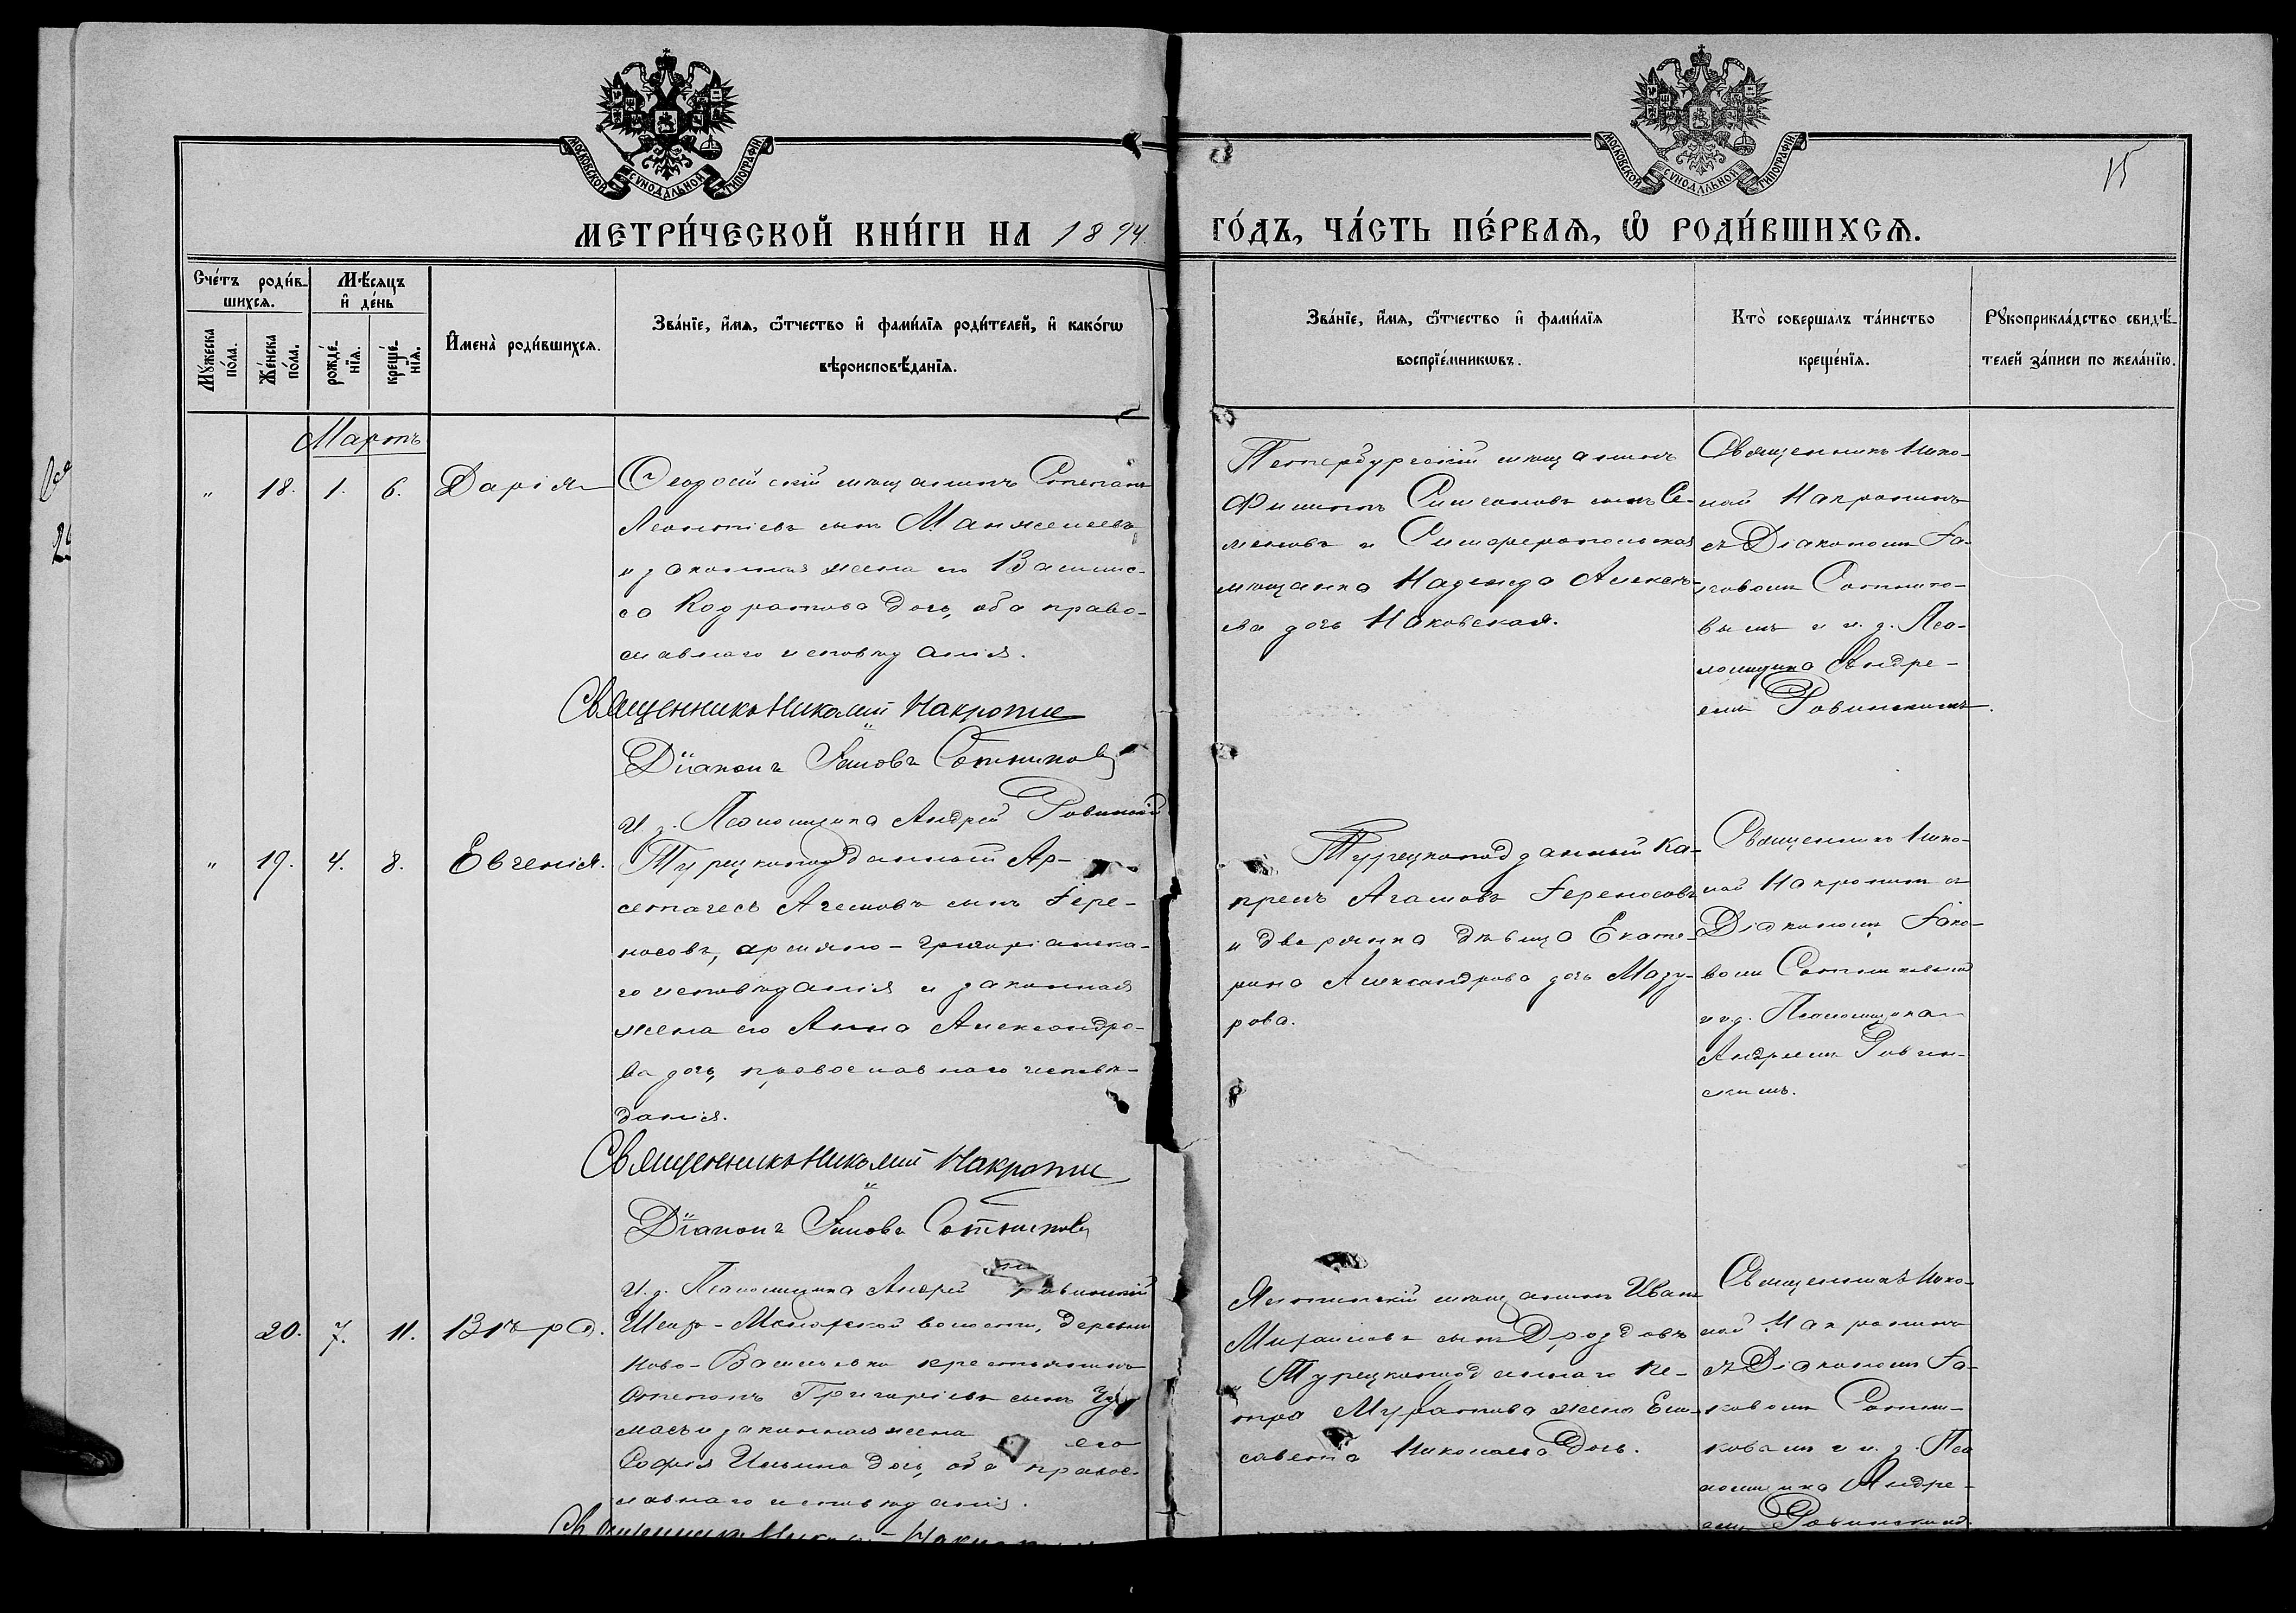 МОСКОВСКОЙ СѴНОДАЛЬНОЙ ТИПОГРАФІИ
МОСКОВСКОЙ СѴНОДАЛЬНОЙ ТИПОГРАФІИ
15
МЕТРИ́ЧЕСКОЙ КНИ́ГИ НА 1894 ГО́ДЪ, ЧА́СТЬ ПЕ́РВАѦ, Ѡ҆ РОДИ́ВШИХСѦ.
Сче́тъ роди́в-
шихсѧ.
Мꙋ́жеска по́ла.
Же́нска по́ла.
Мѣ́сѧцъ
и҆ де́нь
рожде́-нїѧ.
креще́-нїѧ.
И҆мена̀ роди́вшихсѧ.
Зва́нїе, и҆́мѧ, ѻ҆́тчество и҆ фами́лїѧ роди́телей, и҆ како́гѡ
вѣроисповѣ́данїѧ.
Зва́нїе, и҆́мѧ, ѻ҆́тчество и҆ фами́лїѧ
воспрїе́мникѡвъ.
Кто̀ соверша́лъ та́инство
креще́нїѧ.
Рꙋкоприкла́дство свидѣ́-
телей за́писи по жела́нїю.
Мартъ
" 18. 1. 6. Дарія
Ѳеодосійскій мѣщанинъ Степанъ
Леонтіевъ сынъ Манжелеевъ
и законная жена его Васили-
са Кодратова дочь, оба право-
славнаго исповѣданія.
Священникъ Николай Накропин
Діаконъ Іаковъ Сотниковъ
И. д. Псаломщика Андрей Ровинскій
Петербургскій мѣщанинъ
Филиппъ Симеоновъ сынъ Се-
меновъ и Симферопольская
мѣщанка Надежда Алексѣ-
ева дочь Маковская.
Священникъ Нико-
лай Накропинъ
съ Діакономъ Іа-
ковомъ Сотнико-
вымъ и и. д. Пса-
ломщика Андре-
емъ Ровинскимъ.
" 19. 4. 8. Евгенія.
Турецкоподданный Ар-
сетагесъ Агемовъ сынъ Іере-
носовъ, армяно-григоріанска-
го исповѣданія и законная
жена его Анна Александро-
ва дочь, православнаго исповѣ-
данія.
Священникъ Николай Накропин
Діаконъ Іаковъ Сотниковъ
И. д. Псаломщика Андрей Ровинскій
Турецкоподданный Ка-
прелъ Агамовъ Іереносовъ
и дворянка дѣвица Екате-
рина Александрова дочь Мазу-
рова.
Священникъ Нико-
лай Накропинъ съ
Діакономъ Іако-
вомъ Сотниковымъ
и и.д. Псаломщика
Андреемъ Ровин-
скимъ.
20. 7. 11. Вѣра.
Ново-Васильевка крестьянинъ
Степанъ Григоріевъ сынъ
и законная жена его
Софія Ильина дочь, оба правос-
лавнаго исповѣданія.
Священникъ Николай
Ялтинскій мѣщанинъ Иванъ
Михаиловъ сынъ Дроздовъ
и Турецкоподданнаго Пе-
тра Муратова жена Ели-
савета Николаева дочь.
Священникъ Нико-
лай Накропинъ
съ Діакономъ Іа-
ковомъ Сотни-
ковымъ и и. д. Пса
ломщика Андре-
емъ Ровинскимъ.